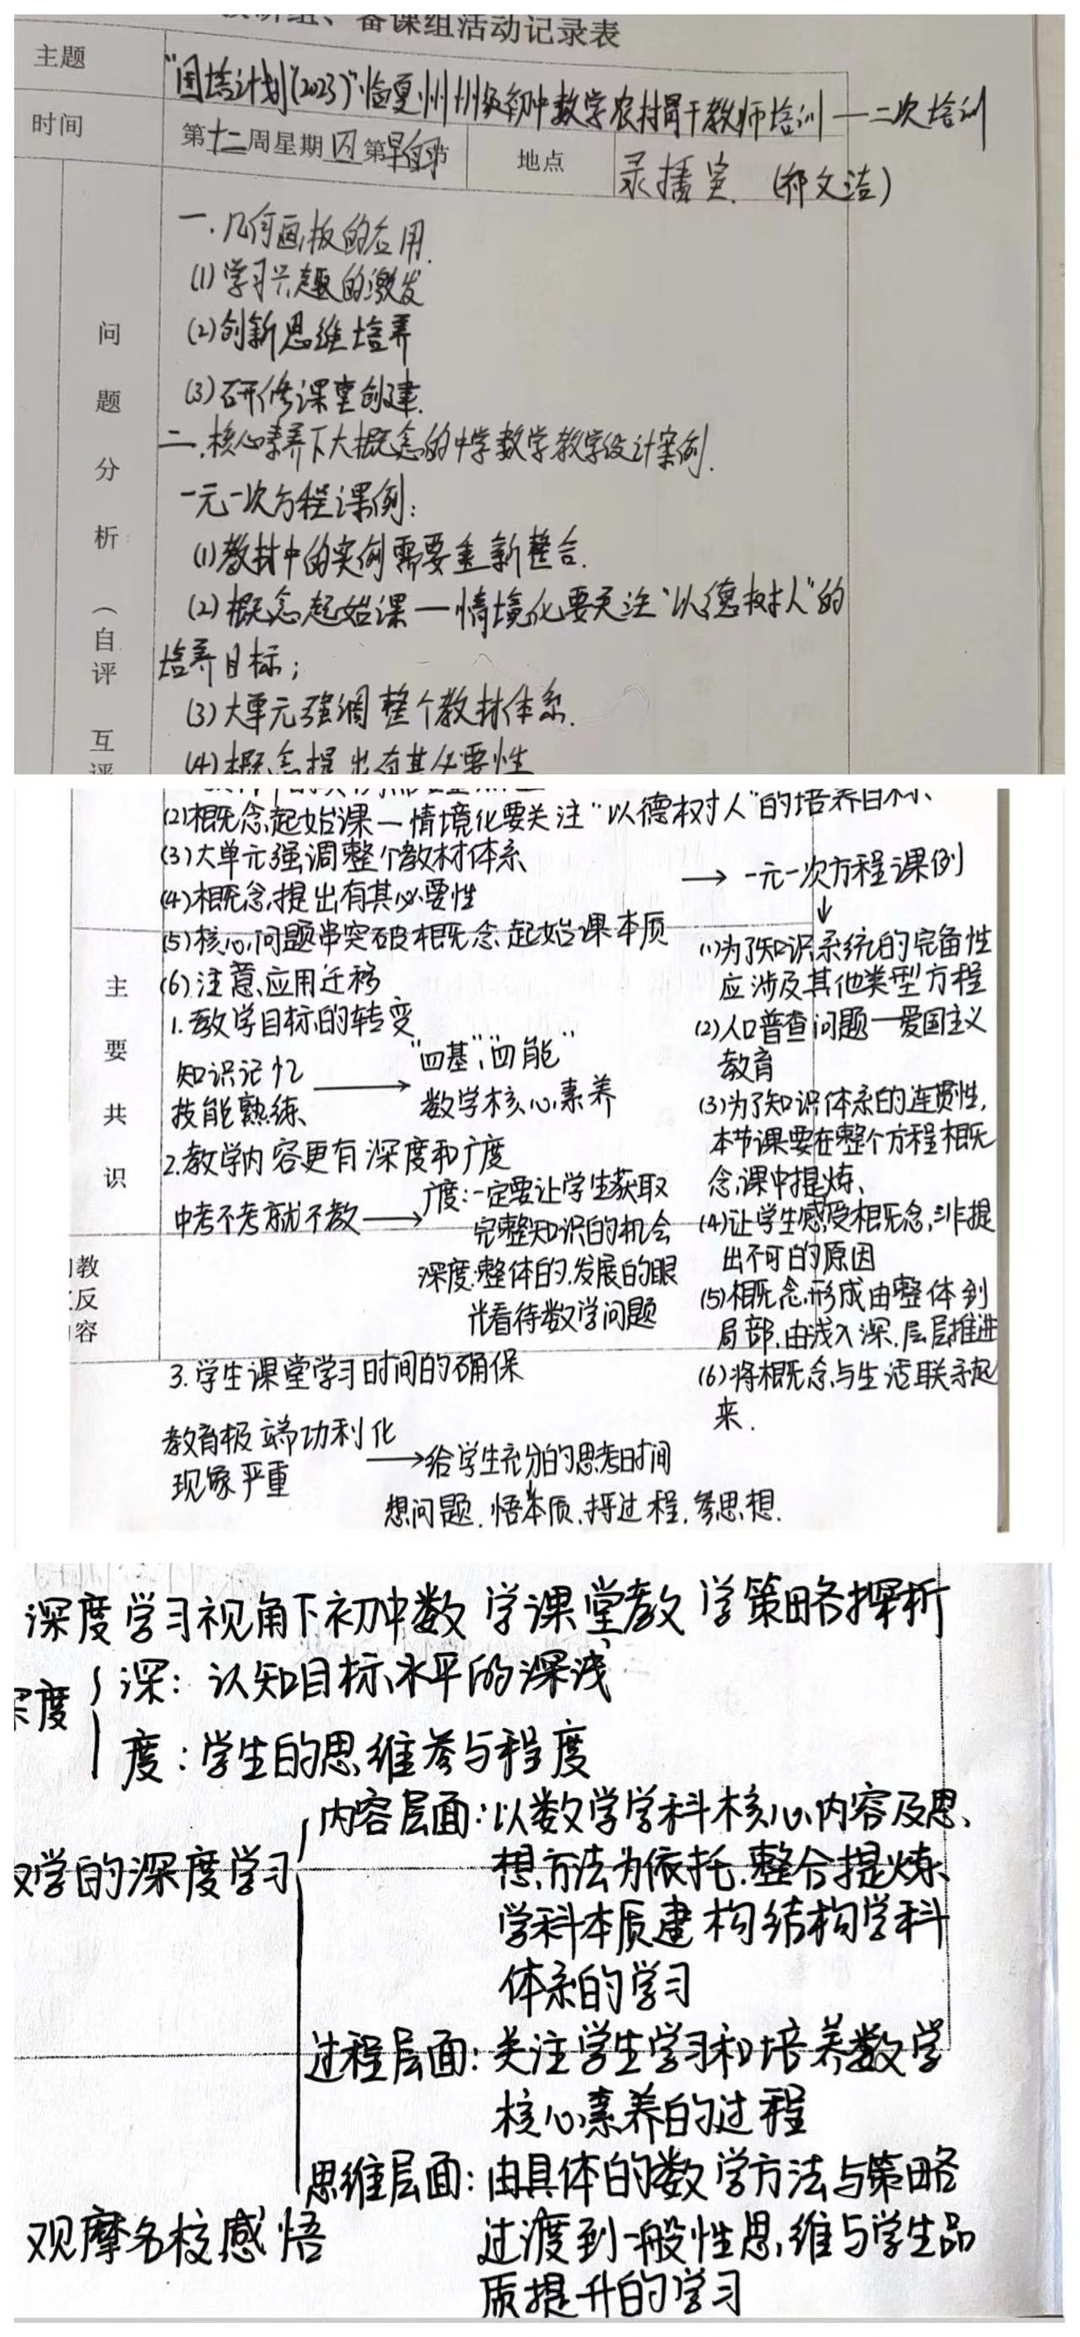 教研组、备课组活动记录表
主题
"国培计划(2023)"临夏州州级初中数学农村骨干教师培训——二次培训
时间
第十二周星期四第早自习节
地点
录播室.(祁文洁)
问题分析(自评 互评
一.几何画板的应用.
(1)学习兴趣的激发
(2)创新思维培养
(3)研修课堂创建.
二.核心素养下大概念的中学数学教学设计案例.
一元一次方程课例:
(1)教材中的实例需要重新整合.
(2)概念起始课—情境化要关注"以德树人"的
培养目标;
(3)大单元强调整个教材体系.
(4)概念提出有其必要性
(2)概念起始课—情境化要关注"以德树人"的培养目标、
(3)大单元强调整个教材体系
(4)概念提出有其必要性
(5)核心问题串突破概念起始课本质
(6)注意应用迁移
主要共识
1.教学目标的转变
知识记忆
技能熟练
→
"四基","四能"
数学核心素养
2.教学内容更有深度和广度
中考不考就不教→
广度:一定要让学生获取
完整知识的机会
深度:整体的.发展的眼
光看待数学问题
教
反
容
3.学生课堂学习时间的确保
教育极端功利化
现象严重
→给学生充分的思考时间
想问题.悟本质.捋过程.参思想.
→一元一次方程课例
↓
(1)为了知识系统的完备性
应涉及其他类型方程
(2)人口普查问题—爱国主义
教育
(3)为了知识体系的连贯性,
本节课要在整个方程概
念课中提炼、
(4)让学生感受概念,非提
出不可的原因
(5)概念形成由整体到
局部.由浅入深.层层推进
(6)将概念与生活联系起
来.
深度学习视角下初中数学课堂教学策略探析
深度
深:认知目标水平的深浅
度:学生的思维参与程度
学的深度学习
内容层面:以数学学科核心内容及思
想方法为依托.整合提炼
学科本质建构结构学科
体系的学习
过程层面:关注学生学习和培养数学
核心素养的过程
思维层面:由具体的数学方法与策略
过渡到一般性思维与学生品
质提升的学习
观摩名校感悟